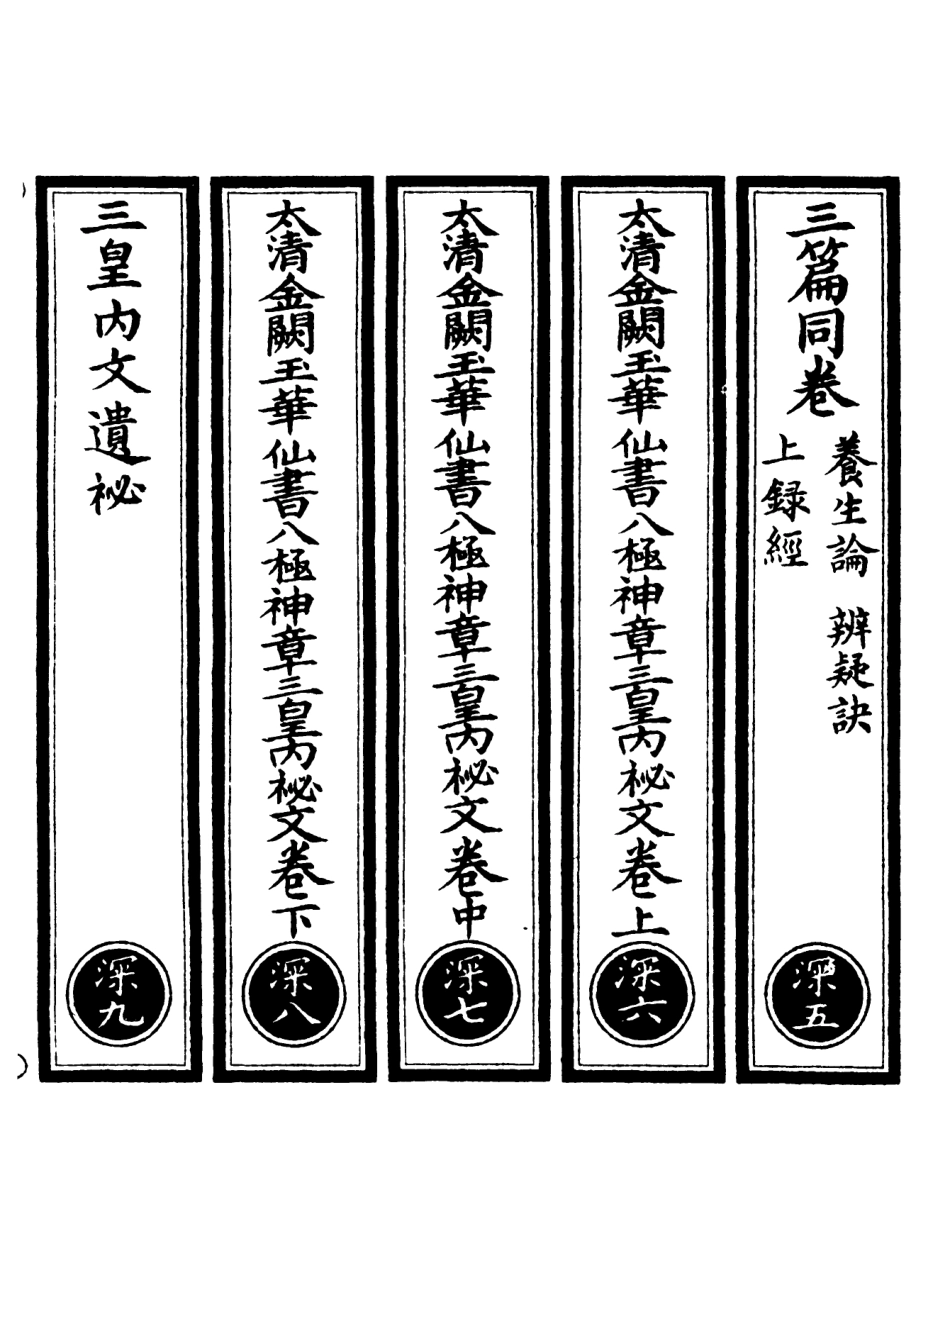 三篇同卷
養生論 辨疑訣
上録經
深五
太清金闕玉華仙書八極神章三皇內祕文卷上
深六
太清金闕玉華仙書八極神章三皇內祕文卷中
深七
太清金闕玉華仙書八極神章三皇內祕文卷下
深八
三皇內文遺祕
深九